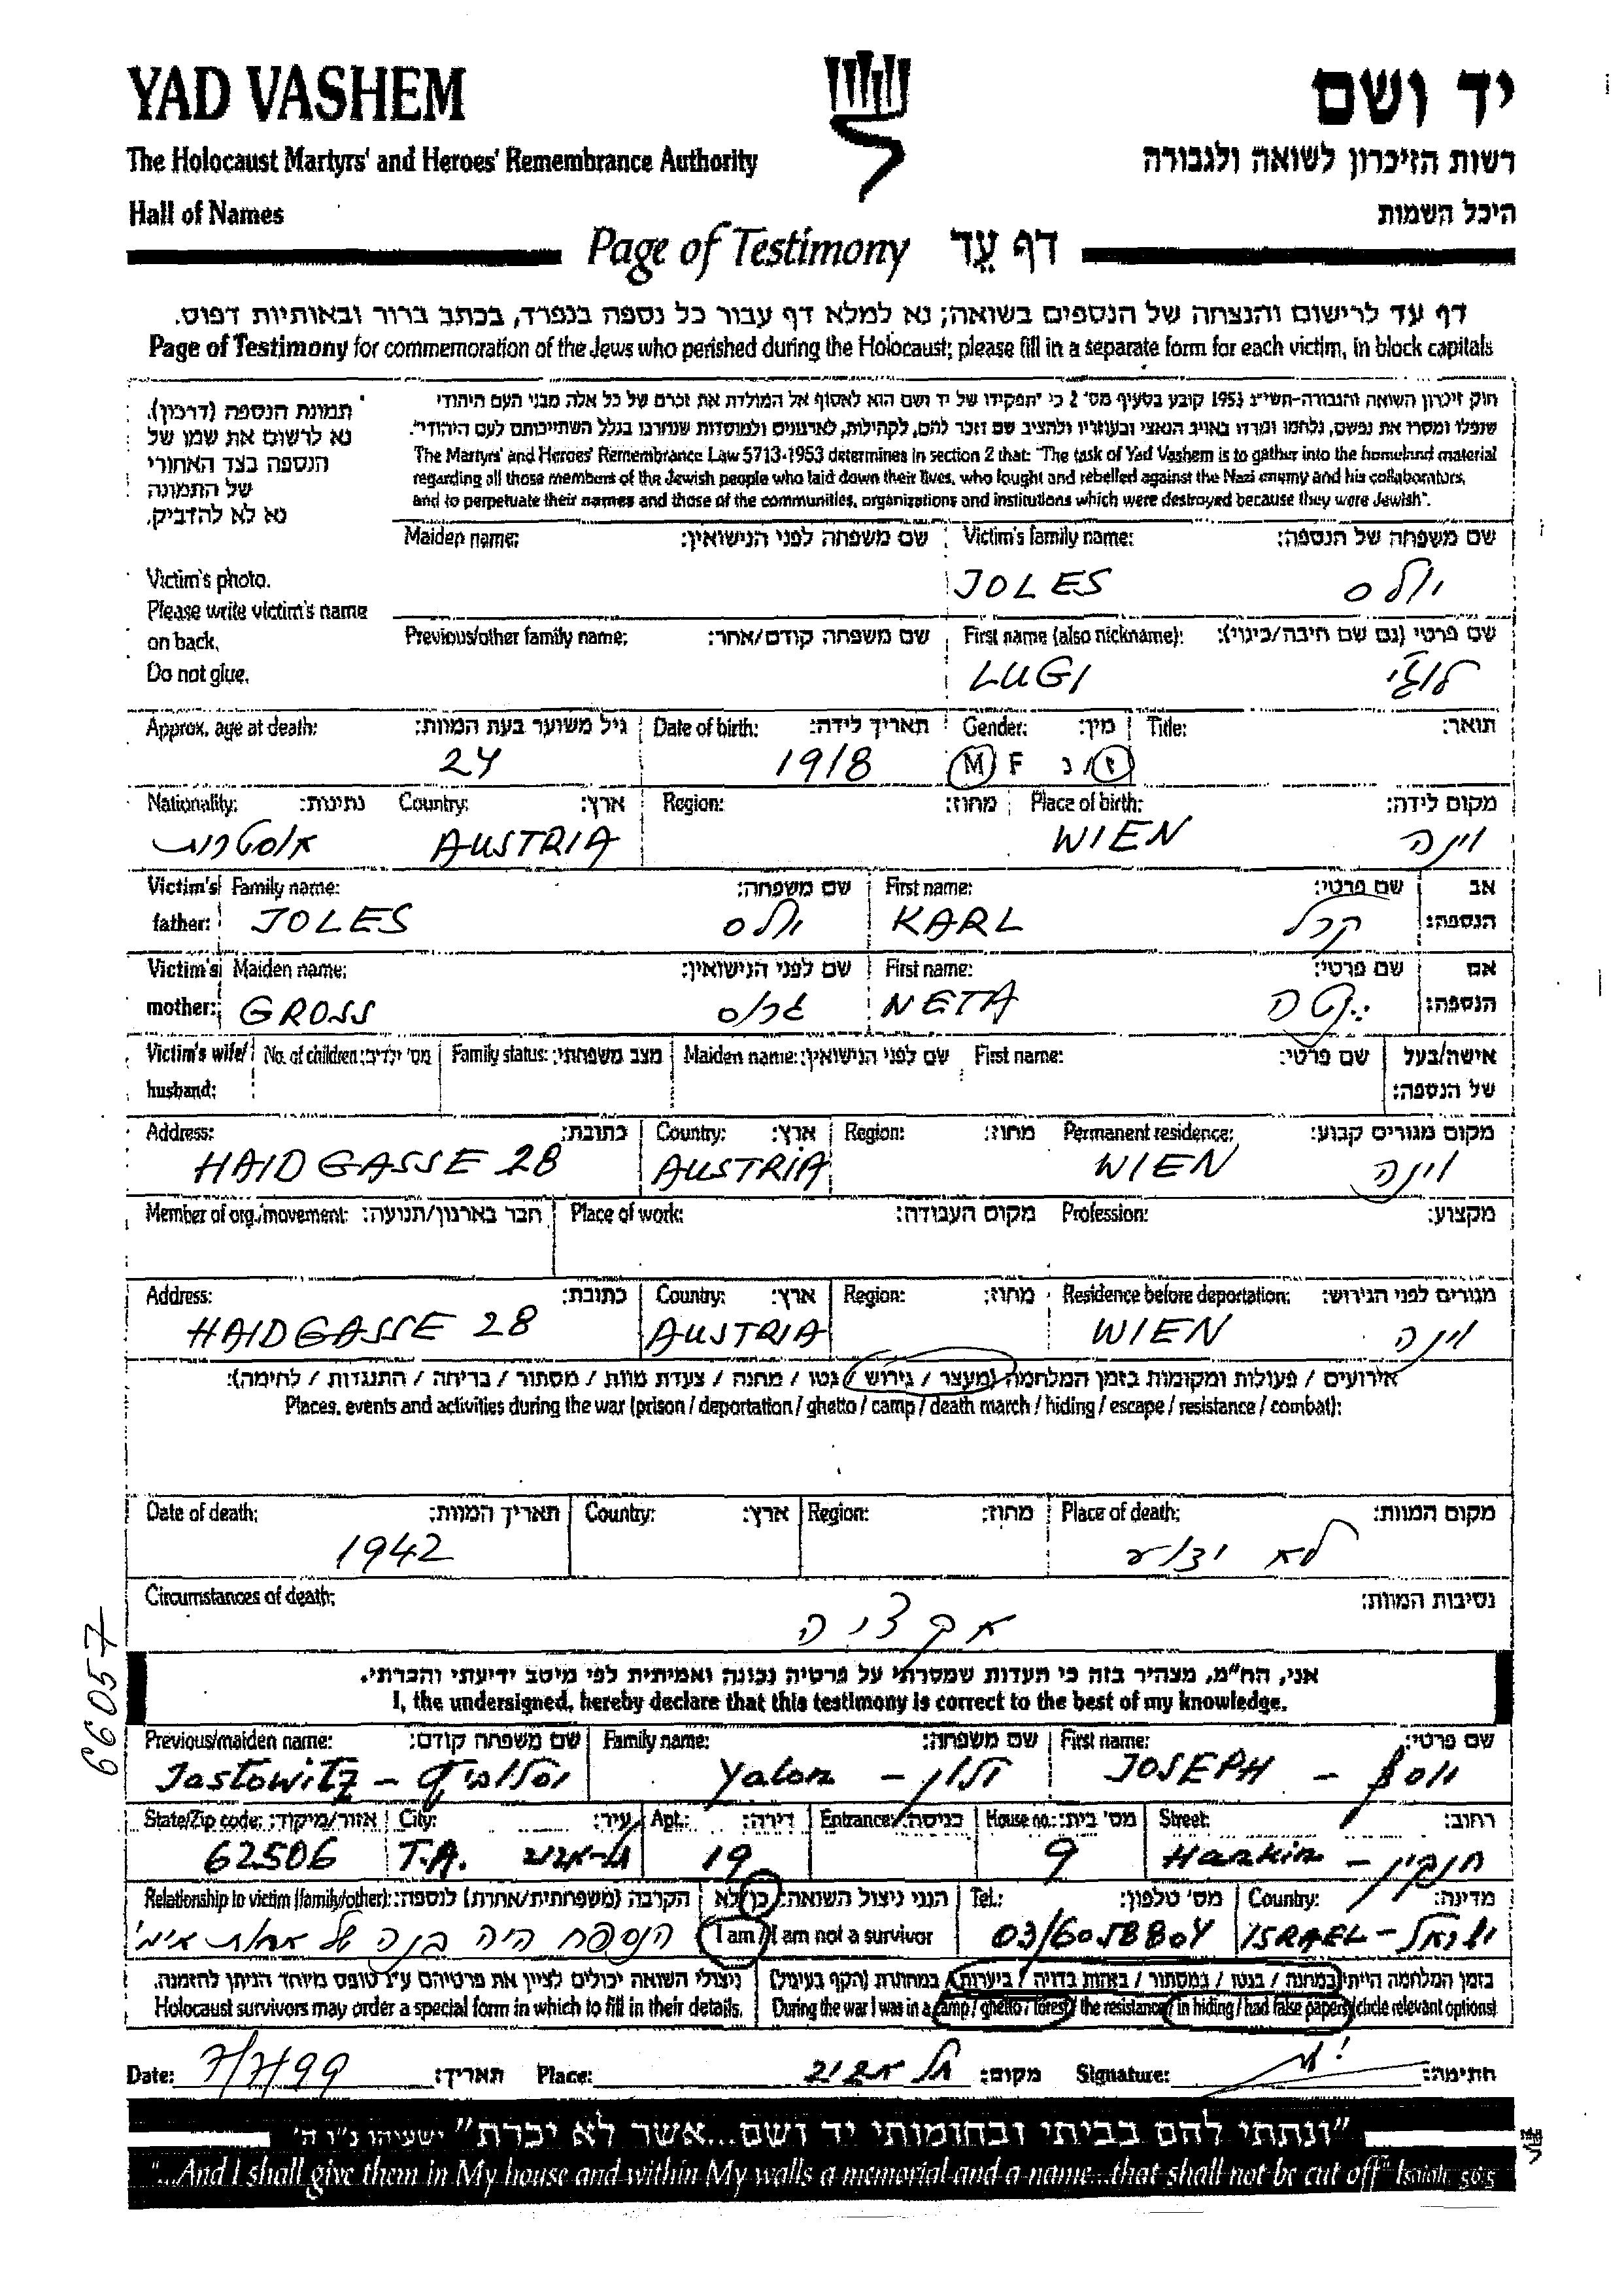 YAD VASHEM
יד ושם
The Holocaust Martyrs' and Heroes' Remembrance Authority
רשות הזיכרון לשואה ולגבורה
Hall of Names
היכל השמות
Page of Testimony דף עֵד
דף עד לרישום והנצחה של הנספים בשואה; נא למלא דף עבור כל נספה בנפרד, בכתב ברור ובאותיות דפוס.
Page of Testimony for commemoration of the Jews who perished during the Holocaust; please fill in a separate form for each victim, in block capitals
תמונת הנספה (דרכון).
נא לרשום את שמו של
הנספה בצד האחורי
של התמונה
נא לא להדביק.
Victim's photo.
Please write victim's name
on back.
Do not glue.
חוק זיכרון השואה והגבורה-תשי"ג 1953 קובע בסעיף מס' 2 כי "תפקידו של יד ושם הוא לאסוף אל המולדת את זכרם של כל אלה מבני העם היהודי
שנפלו ומסרו את נפשם, נלחמו ומרדו באויב הנאצי ובעוזריו ולהציב שם וזכר להם, לקהילות, לארגונים ולמוסדות שנחרבו בגלל השתייכותם לעם היהודי".
The Martyrs' and Heroes' Remembrance Law 5713-1953 determines in section 2 that: "The task of Yad Vashem is to gather into the homeland material
regarding all those members of the Jewish people who laid down their lives, who fought and rebelled against the Nazi enemy and his collaborators,
and to perpetuate their names and those of the communities, organizations and institutions which were destroyed because they were Jewish".
Maiden name: שם משפחה לפני הנישואין: Victim's family name: שם משפחה של הנספה:
JOLES יולס
Previous/other family name: שם משפחה קודם/אחר: First name (also nickname): שם פרטי (גם שם חיבה/כינוי):
LUGI לוגי
Approx. age at death: גיל משוער בעת המוות: Date of birth: תאריך לידה: Gender: מין: Title: תואר:
24 1918 M F ז/נ
Nationality: נתינות: Country: ארץ: Region: מחוז: Place of birth: מקום לידה:
אוסטרית AUSTRIA WIEN וינה
Victim's Family name: שם משפחה: First name: שם פרטי: אב
father: JOLES יולס KARL קרל הנספה:
Victim's Maiden name: שם לפני הנישואין: First name: שם פרטי: אם
mother: GROSS גרוס NETA נטה הנספה:
Victim's wife/ No. of children: מס' ילדים: Family status: מצב משפחתי: Maiden name: שם לפני הנישואין: First name: שם פרטי: אישה/בעל
husband: של הנספה:
Address: כתובת: Country: ארץ: Region: מחוז: Permanent residence: מקום מגורים קבוע:
HAIDGASSE 28 AUSTRIA WIEN וינה
Member of org./movement: חבר בארגון/תנועה: Place of work: מקום העבודה: Profession: מקצוע:
Address: כתובת: Country: ארץ: Region: מחוז: Residence before deportation: מגורים לפני הגירוש:
HAIDGASSE 28 AUSTRIA WIEN וינה
אירועים / פעולות ומקומות בזמן המלחמה (מעצר / גירוש / גטו / מחנה / צעדת מוות / מסתור / בריחה / התנגדות / לחימה):
Places, events and activities during the war (prison / deportation / ghetto / camp / death march / hiding / escape / resistance / combat):
Date of death: תאריך המוות: Country: ארץ: Region: מחוז: Place of death: מקום המוות:
1942 לא ידוע
Circumstances of death: נסיבות המוות:
אקציה
66057
אני, הח"מ, מצהיר בזה כי העדות שמסרתי על פרטיה נכונה ואמיתית לפי מיטב ידיעתי והכרתי.
I, the undersigned, hereby declare that this testimony is correct to the best of my knowledge.
Previous/maiden name: שם משפחה קודם: Family name: שם משפחה: First name: שם פרטי:
Jastowitz - Yalon - ילון JOSEPH - יוסף
State/Zip code: אזור/מיקוד: City: עיר: Apt.: דירה: Entrance: כניסה: House no.: מס' בית: Street: רחוב:
62506 T.A. תל-אביב 19 9 Hankin - חנקין
Relationship to victim (family/other): הקרבה (משפחתית/אחרת) לנספה: הנני ניצול השואה: כן/לא Tel.: מס' טלפון: Country: מדינה:
הנספה היה בנה של אחות אימי I am / I am not a survivor 03/6058804 ISRAEL - ישראל
ניצולי השואה יכולים לציין את פרטיהם ע"ג טופס מיוחד הניתן להזמנה. בזמן המלחמה הייתי במחנה / בגטו / במסתור / בזהות בדויה / ביערות / במחתרת (הקף בעיגול)
Holocaust survivors may order a special form in which to fill in their details. During the war I was in a camp / ghetto / forest / the resistance / in hiding / had false papers (circle relevant options)
Date: 7/7/99 תאריך: Place: תל אביב מקום: Signature: חתימה:
"ונתתי להם בביתי ובחומותי יד ושם...אשר לא יכרת" ישעיהו נ"ו ה'
"...And I shall give them in My house and within My walls a memorial and a name...that shall not be cut off" Isaiah 56:5